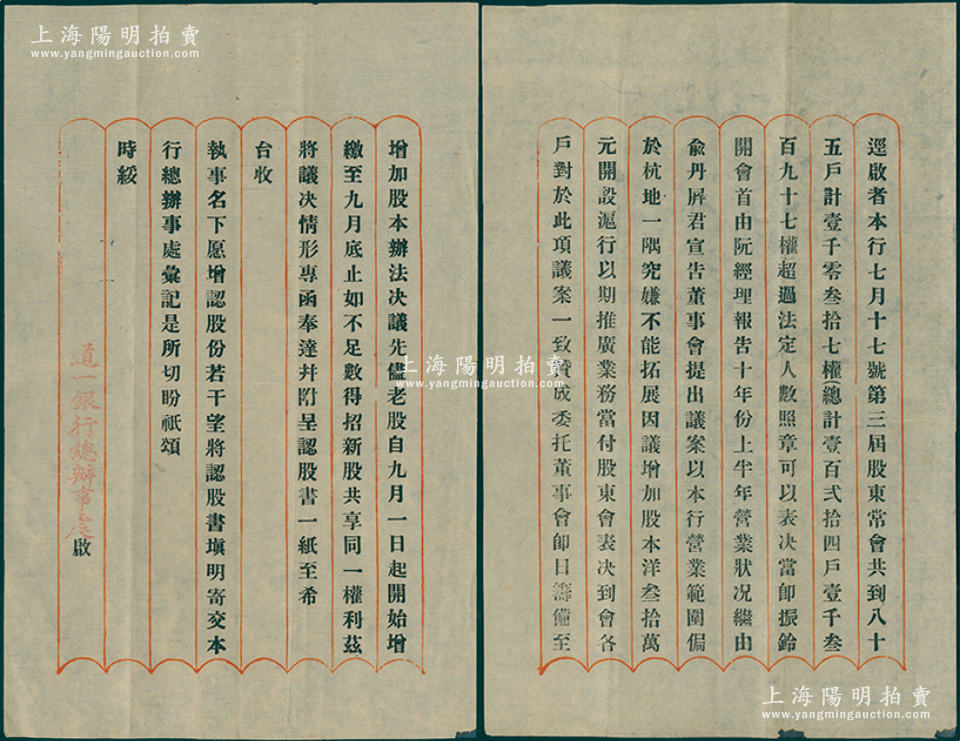 上海陽明拍賣
www.yangmingauction.com
逕啟者本行七月十七號第三屆股東常會共到八十
五戶計壹千零叁拾七權(總計壹百弍拾四戶壹千叁
百九十七權超過法定人數照章可以表决當卽振鈴
開會首由阮經理報告十年份上半年營業狀况繼由
兪丹屛君宣告董事會提出議案以本行營業範圍偏
於杭地一隅究嫌不能拓展因議增加股本洋叁拾萬
元開設滬行以期推廣業務當付股東會表决到會各
戶對於此項議案一致贊成委托董事會卽日籌備至
增加股本辦法决議先儘老股自九月一日起開始增
繳至九月底止如不足數得招新股共享同一權利茲
將議决情形專函奉達幷附呈認股書一紙至希
台收
執事名下愿增認股份若干望將認股書塡明寄交本
行總辦事處彙記是所切盼祇頌
時綏
道一銀行總辦事處啟
上海陽明拍賣
www.yangmingauction.com
上海陽明拍賣
www.yangmingauction.com